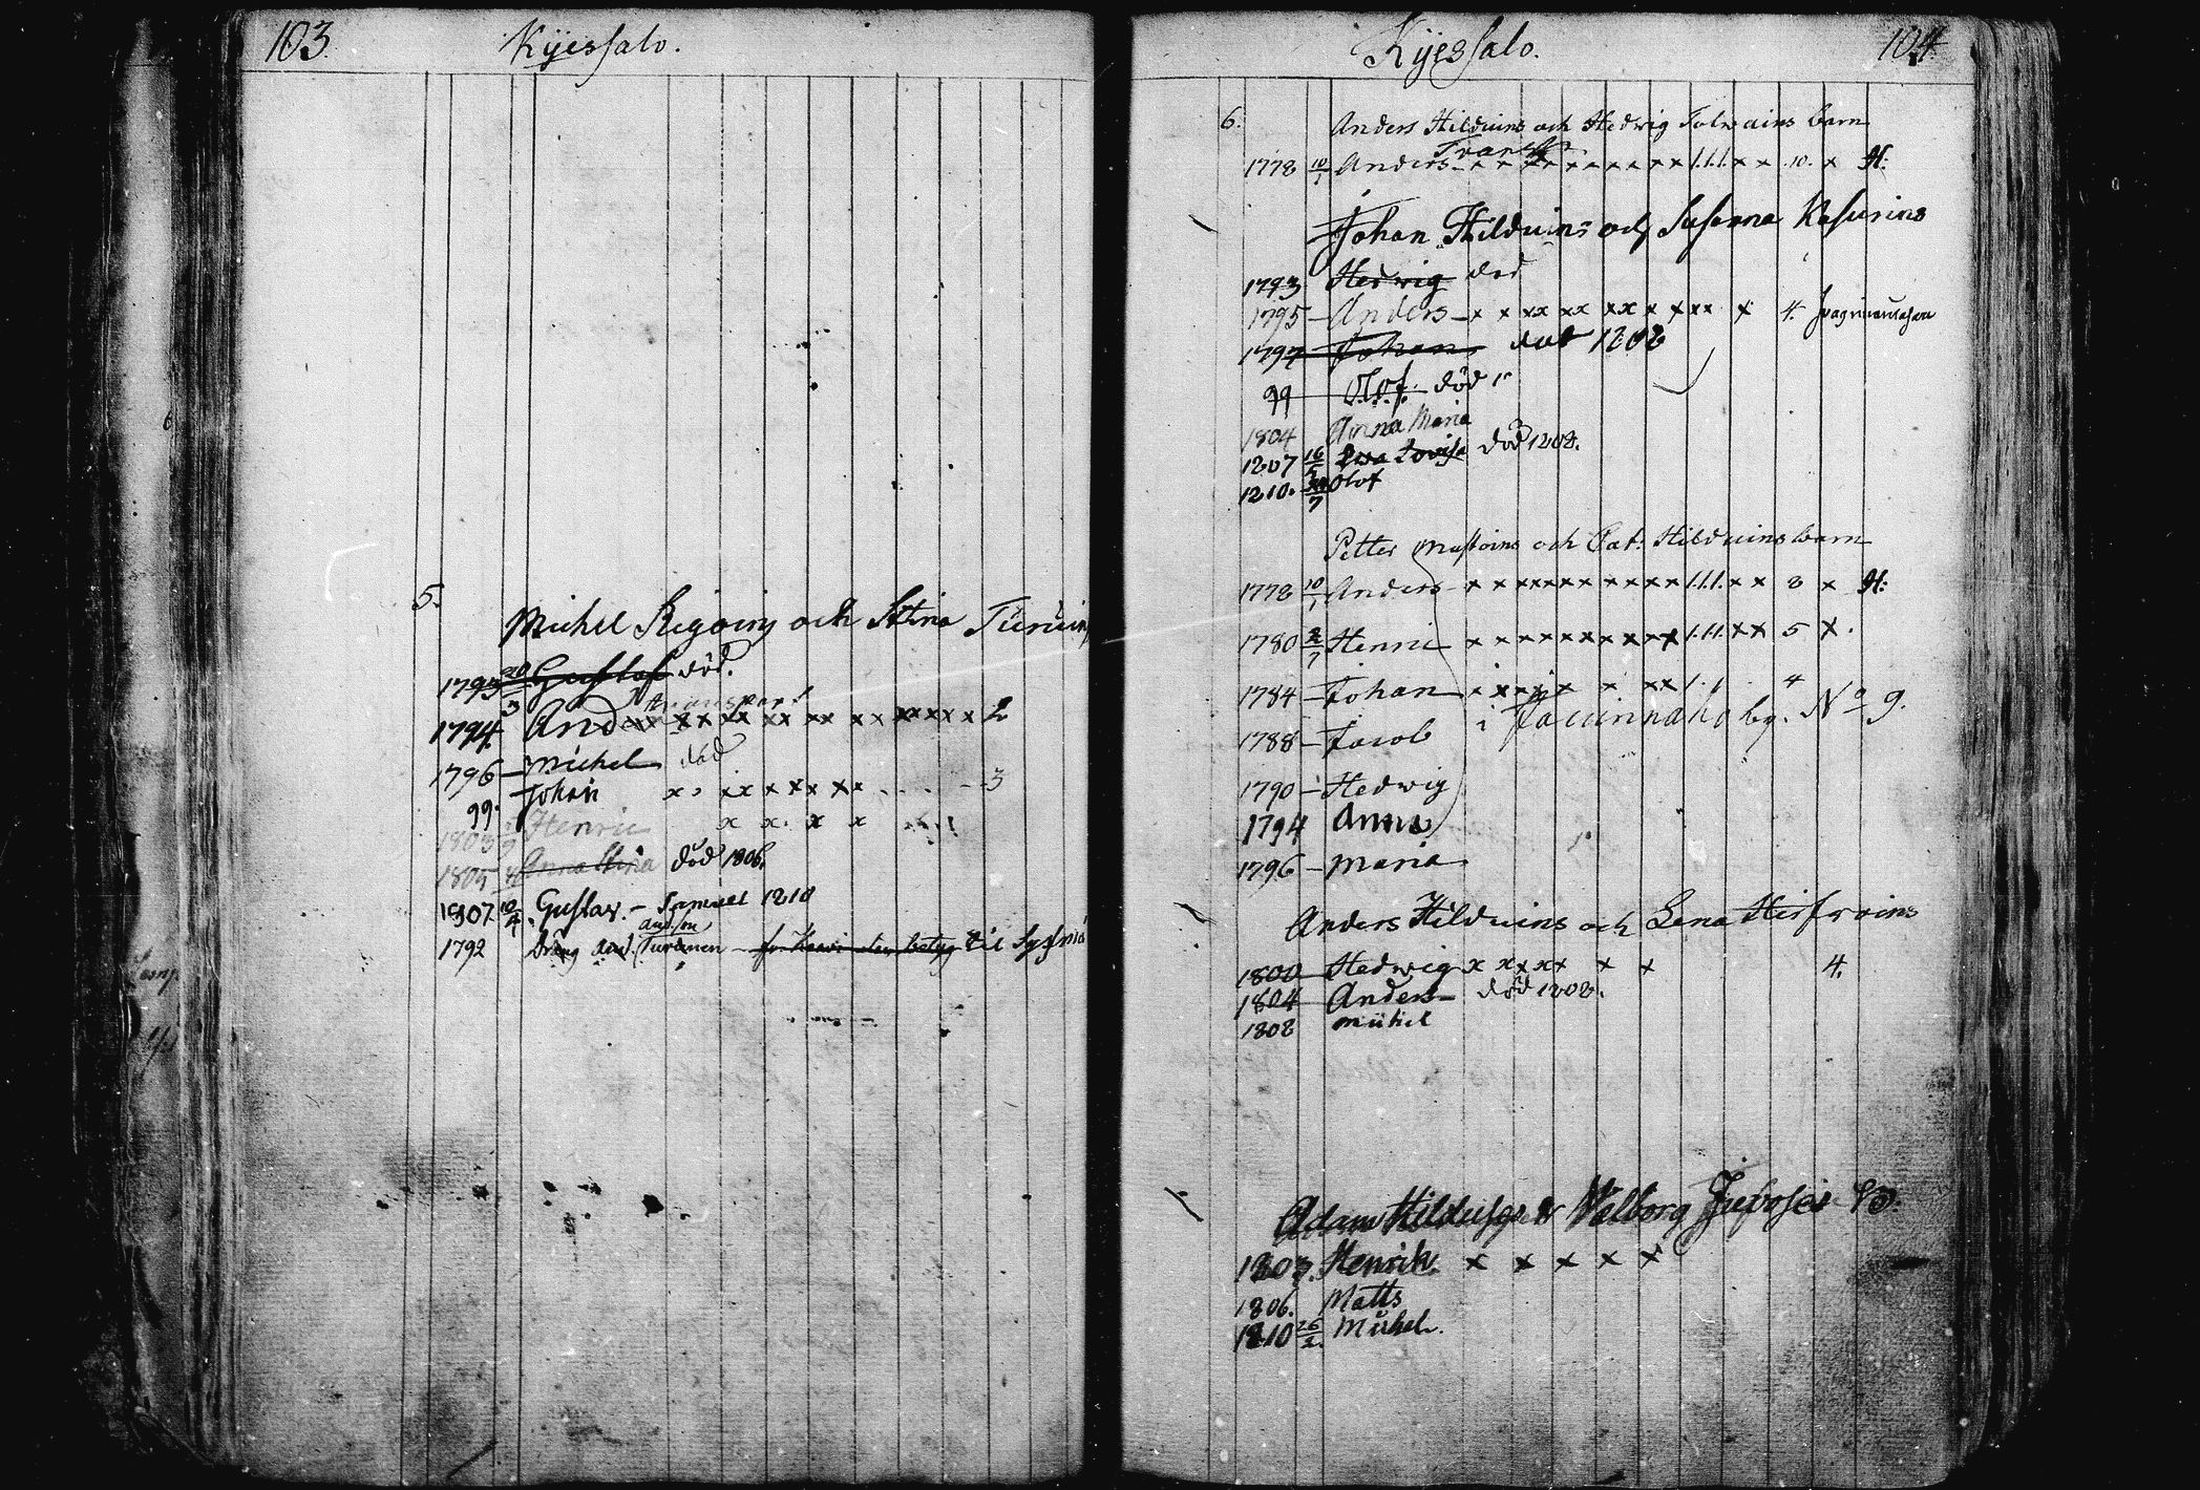 103. Kÿessalo.
5.
Michel och Stina
1793 20 Gustaf död.
1794. 3 Anders x x x x x x x x x x x x x 2
1796 Michel död
99. Johan x x x x x x x x 3
1803 Henric x x. x x
1805 Anna Stina död 1806.
1807 10/4 Gustav. - Samuel 1810
And.son
1792 Dräng And. Turunen betyg til
Kÿessalo. 104
6. Anders Hilduins och Hedwig barn
Transp.
1778 10/1 Anders x x x x x x x x x x l.l.l. x x 10. x H:
Johan Hilduins och Susanna
1793 Hedwig död
1795 Anders x x xx xx xx x x xx x 4.
1797 Johan död 1808
99 Olof död
1804 Anna Maria
1807 16 Eva Lovisa död 1808.
1810. 7 Olof
Petter och Cat: Hilduins barn
1778 10/1 Anders x x x x x x x x x x x x l.l.l. x x 8 x H:
1780 2/7 Henric x x x x x x x x x x x l.l.l. x x 5 x.
1784 Johan x x x x x x x l. 4
1788 Jacob i by. No 9.
1790 Hedwig
1794 Anna
1796 Maria
Anders Hilduins och Lena
1800 Hedwig x x x x x x x 4.
1804 Anders död 1808.
1808 Michel
Adam Valborg
1803. Henrik. x x x x x
1806. Matts
1810 26/2. Michel.